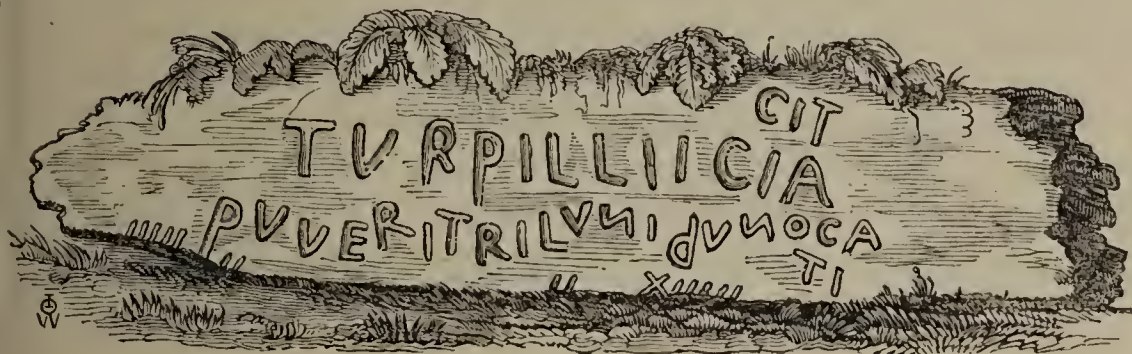 CIT
TVRPILLIICIA
PVVERITRILVNI dVNOCA
TI